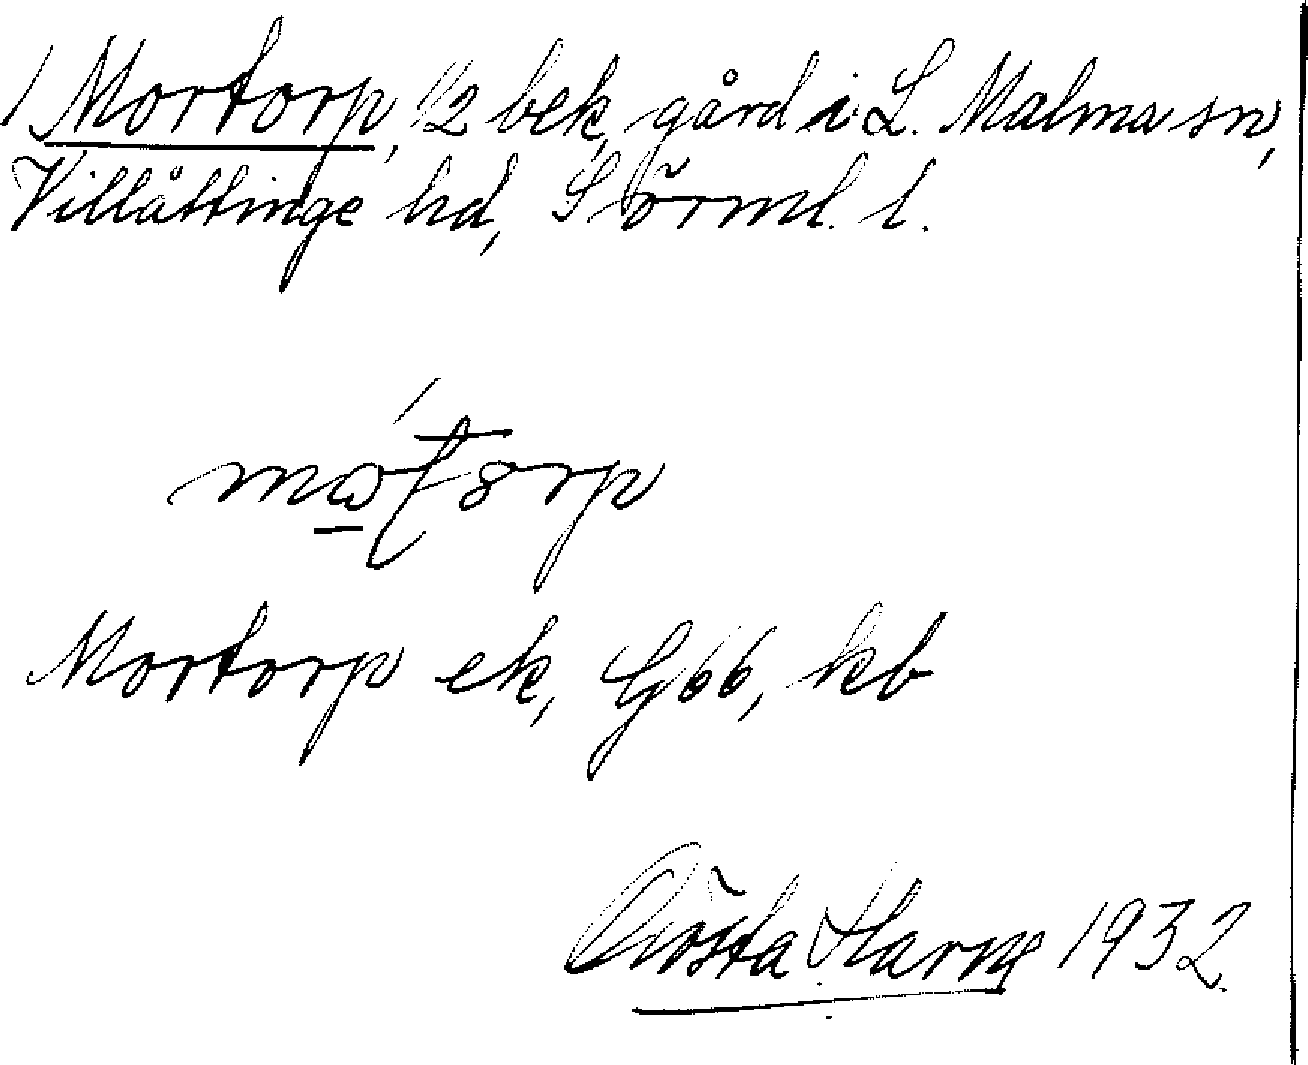 1 Mortorp, 1/2 bek, gård i L. Malma sn,
Villåttinge hd, Sörml. l.
Mortorp ek, G66, kb
Gösta Harne 1932.